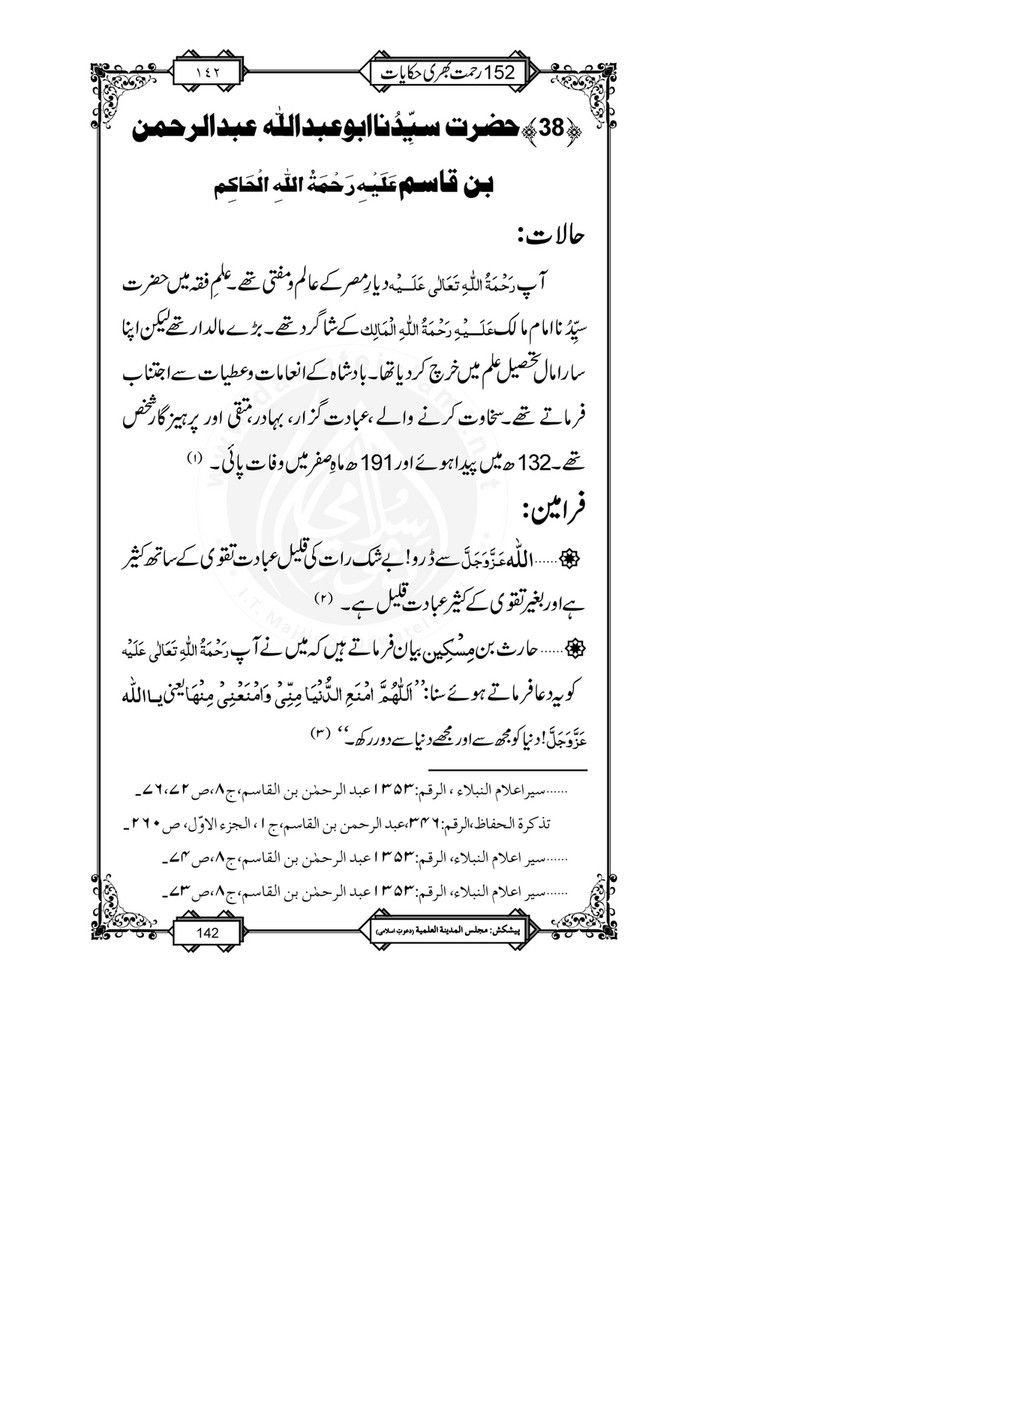 152 رحمت بھری حکایات
١٤٢
﴿38﴾حضرت سیِّدُنا ابو عبداللہ عبدالرحمن
بن قاسم عَلَیْہِ رَحْمَۃُ اللہِ الْحَاکِم
حالات:
آپ رَحْمَۃُ اللہِ تَعَالٰی عَلَـیْہ دیارِ مصر کے عالم و مفتی تھے۔ علمِ فقہ میں حضرت
سیِّدُنا امام مالک عَلَـیْہِ رَحْمَۃُ اللہِ الْمَالِک کے شاگرد تھے۔ بڑے مالدار تھے لیکن اپنا
سارا مال تحصیل علم میں خرچ کر دیا تھا۔ بادشاہ کے انعامات و عطیات سے اجتناب
فرماتے تھے۔ سخاوت کرنے والے، عبادت گزار، بہادر، متقی اور پرہیزگار شخص
تھے۔ 132ھ میں پیدا ہوئے اور 191ھ ماہِ صفر میں وفات پائی۔ (۱)
فرامین:
......اللہ عَزَّوَجَلَّ سے ڈرو! بے شک رات کی قلیل عبادت تقویٰ کے ساتھ کثیر
ہے اور بغیر تقویٰ کے کثیر عبادت قلیل ہے۔ (۲)
......حارث بن مِسْکِین بیان فرماتے ہیں کہ میں نے آپ رَحْمَۃُ اللہِ تَعَالٰی عَلَیْہ
کو یہ دعا فرماتے ہوئے سنا: ’’اَللّٰھُمَّ امْنَعِ الدُّنْیَا مِنِّیْ وَامْنَعْنِیْ مِنْھَا یعنی یا اللہ
عَزَّوَجَلَّ! دنیا کو مجھ سے اور مجھے دنیا سے دور رکھ۔‘‘ (۳)
......سیر اعلام النبلاء، الرقم: ۱۳۵۳ عبد الرحمٰن بن القاسم، ج۸، ص۷۲، ۷۶۔
تذکرۃ الحفاظ، الرقم: ۳۴۶، عبد الرحمن بن القاسم، ج۱، الجزء الاوّل، ص۲۶۰۔
......سیر اعلام النبلاء، الرقم: ۱۳۵۳ عبد الرحمٰن بن القاسم، ج۸، ص۷۴۔
......سیر اعلام النبلاء، الرقم: ۱۳۵۳ عبد الرحمٰن بن القاسم، ج۸، ص۷۳۔
پیشکش: مجلس المدینۃ العلمیۃ (دعوتِ اسلامی)
142